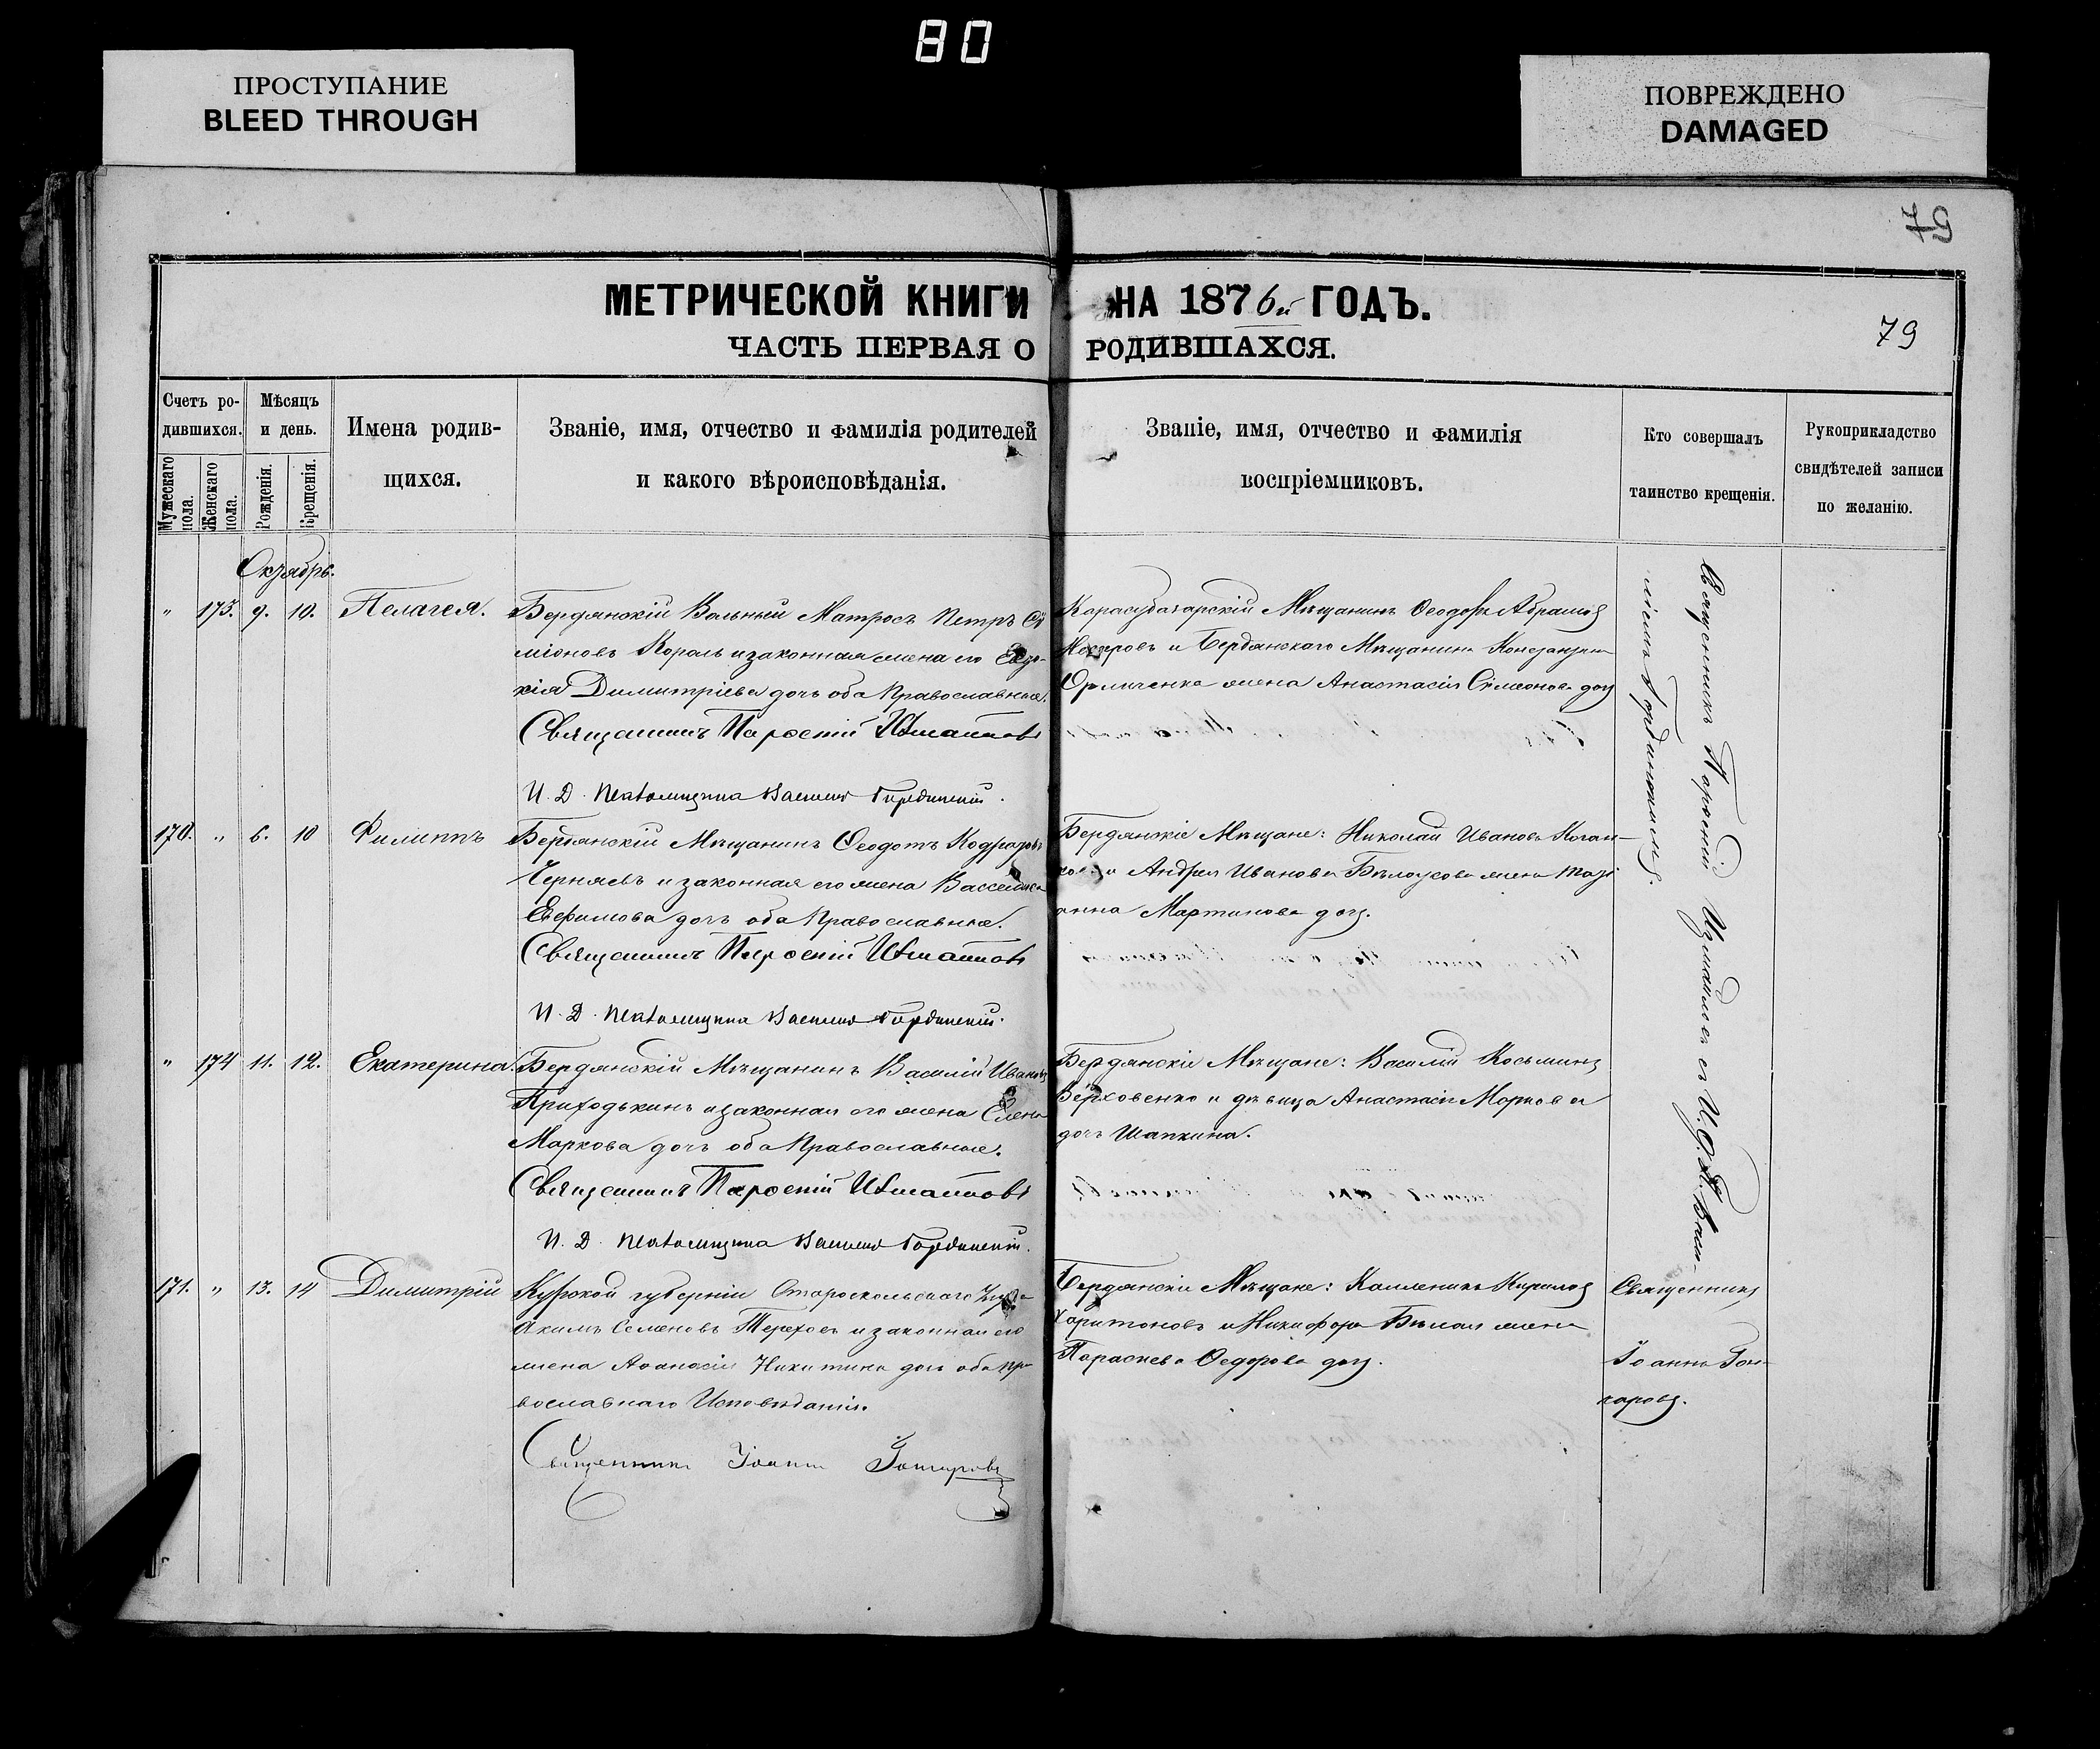 80
ПРОСТУПАНИЕ
BLEED THROUGH
ПОВРЕЖДЕНО
DAMAGED
79
МЕТРИЧЕСКОЙ КНИГИ НА 1876й ГОДЪ.
ЧАСТЬ ПЕРВАЯ О РОДИВШАХСЯ.
79
Счетъ ро-
дившихся.
Мужескаго пола.
Женскаго пола.
Мѣсяцъ
и день.
Рожденія.
Крещенія.
Имена родив-
шихся.
Званіе, имя, отчество и фамилія родителей
и какого вѣроисповѣданія.
Званіе, имя, отчество и фамилія
воспріемниковъ.
Кто совершалъ
таинство крещенія.
Рукоприкладство
свидѣтелей записи
по желанію.
Октябрь.
" 173. 9. 10. Пелагея.
Бердянскій Вольный Матросъ Петръ Си
міоновъ Король и законная жена его Евдо-
кія Димитріева дочь оба Православные.
Священникъ Парѳеній Измаиловъ
И. Д. Псаломщика Василій Гординскій.
Карасубазарскій Мѣщанинъ Ѳеодоръ Абрамов
и Бердянскаго Мѣщанина Константина
жена Анастасія Симеонова дочь
170. " 6. 10 Филиппъ
Бердянскій Мѣщанинъ Ѳеодотъ Кодратовъ
Черняевъ и законная его жена Васселиса
Евфимова дочь оба Православные.
Священникъ Парѳеній Измаиловъ
И. Д. Псаломщика Василій Гординскій.
Бердянскіе Мѣщане: Николай Ивановъ
и Андрея Иванова Бѣлоусова жена Тат
анна Мартинова дочь.
" 174 11. 12. Екатерина.
Бердянскій Мѣщанинъ Василій Ивановъ
Приходькинъ и законная его жена Елена
Маркова дочь оба Православные.
Священникъ Парѳеній Измаиловъ
И. Д. Псаломщика Василій Гординскій.
Бердянскіе Мѣщане: Василій Косьминъ
Верховенко и дѣвица Анастасія Маркова
дочь Шапкина.
Священникъ Парѳеній Измаиловъ съ И. Д. П. Васи-
ліемъ Гординскимъ.
171. " 13. 14 Димитрій
Курской губерніи Старооскольскаго
Акимъ Семеновъ Тереховъ и законная его
жена Аѳанасія Никитина дочь оба пра
вославнаго Исповѣданія.
Священникъ Іоаннъ Гончаровъ
Бердянскіе Мѣщане: Каленикъ Кириловъ
Харитоновъ и Никифора Бѣлая жена
Параскева Ѳедорова дочь.
Священникъ
Іоаннъ Гон-
чаровъ.